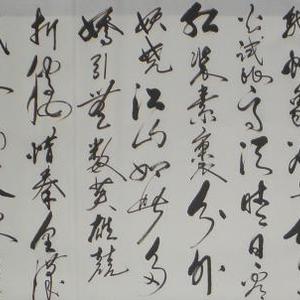 公試比高須晴日看
紅裝素裹分外
妖嬈江山如此多
嬌引無數英雄競
折腰惜秦皇漢